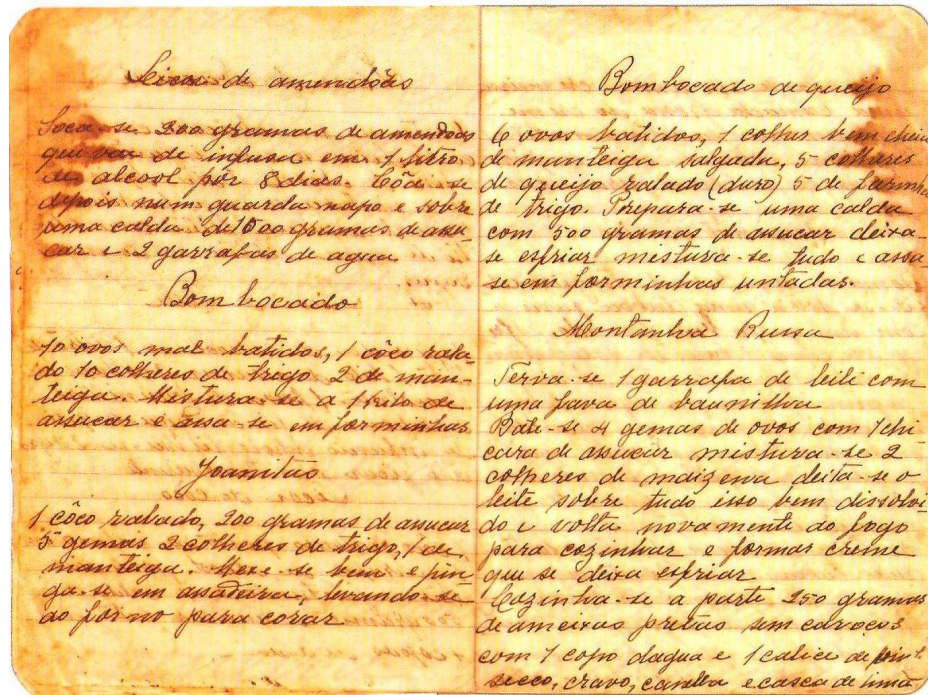 Licor de amendoas
Soca-se 200 gramas de amendoas
que vae de infusa em 1 litro
de alcool por 8 dias. Côa-se
depois num guarda napo e sobre
uma calda de 1000 gramas de assu-
car e 2 garrafas de agua
Bom bocado
10 ovos mal batidos, 1 côco rala-
do 10 colheres de trigo 2 de man-
teiga. Mistura-se a 1 kilo de
assucar e assa-se em forminhas
Joanitas
1 côco ralado, 200 gramas de assucar
5 gemas 2 colheres de trigo, 1 de
manteiga. Mexe-se bem e pin-
ga-se em assadeira, levando-se
ao forno para corar
Bombocado de queijo
6 ovos batidos, 1 colher bem cheia
de manteiga salgada, 5 colheres
de queijo ralado (duro) 5 de farinha
de trigo. Prepara-se uma calda
com 500 gramas de assucar deixa-
se esfriar mistura-se tudo e assa-
se em forminhas untadas.
Montanha Russa
Ferva-se 1 garrafa de leite com
uma fava de baunilha
Bate-se 4 gemas de ovos com 1 chi
cara de assucar mistura-se 2
colheres de maizena deita-se o
leite sobre tudo isso bem dissolvi-
do e volta novamente ao fogo
para cozinhar e formar creme
que se deixa esfriar
Cozinha-se a parte 250 gramas
de ameixas pretas sem caroços
com 1 copo dagua e 1 calice de
secco, cravo, canella e casca de limão